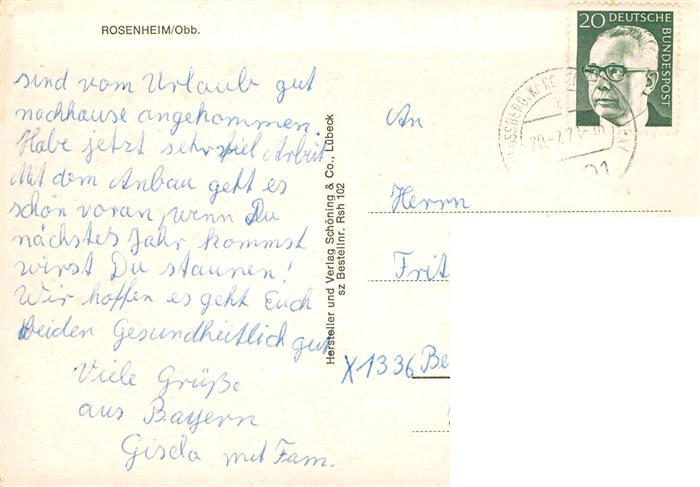 ROSENHEIM/Obb.
sind vom Urlaub gut
nachhause angekommen.
Habe jetzt sehr viel Arbeit
Mit dem Anbau geht es
schön voran, wenn Du
nächstes Jahr kommst
wirst Du staunen!
Wir hoffen es geht Euch
beiden Gesundheitlich gut
Viele Grüße
aus Bayern
Gisela mit Fam.
Hersteller und Verlag Schöning & Co., Lübeck
sz Bestellnr. Rsh 102
20 DEUTSCHE
BUNDESPOST
An
Herrn
Frit
X1336 Be